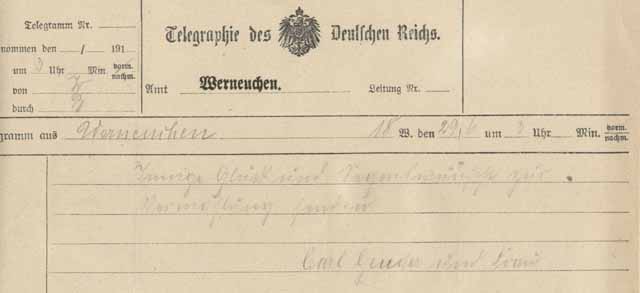 Telegramm Nr.
nommen den / 191
um 3 Uhr Min. vorm. nachm.
von
durch
Telegraphie des Deutschen Reichs.
Amt Werneuchen.
Leitung Nr.
gramm aus Werneuchen 18 W. den 29/6 um 3 Uhr Min. vorm. nachm.
Innige Glück und Segenswünsche zur
Vermählung senden
Carl und Frau